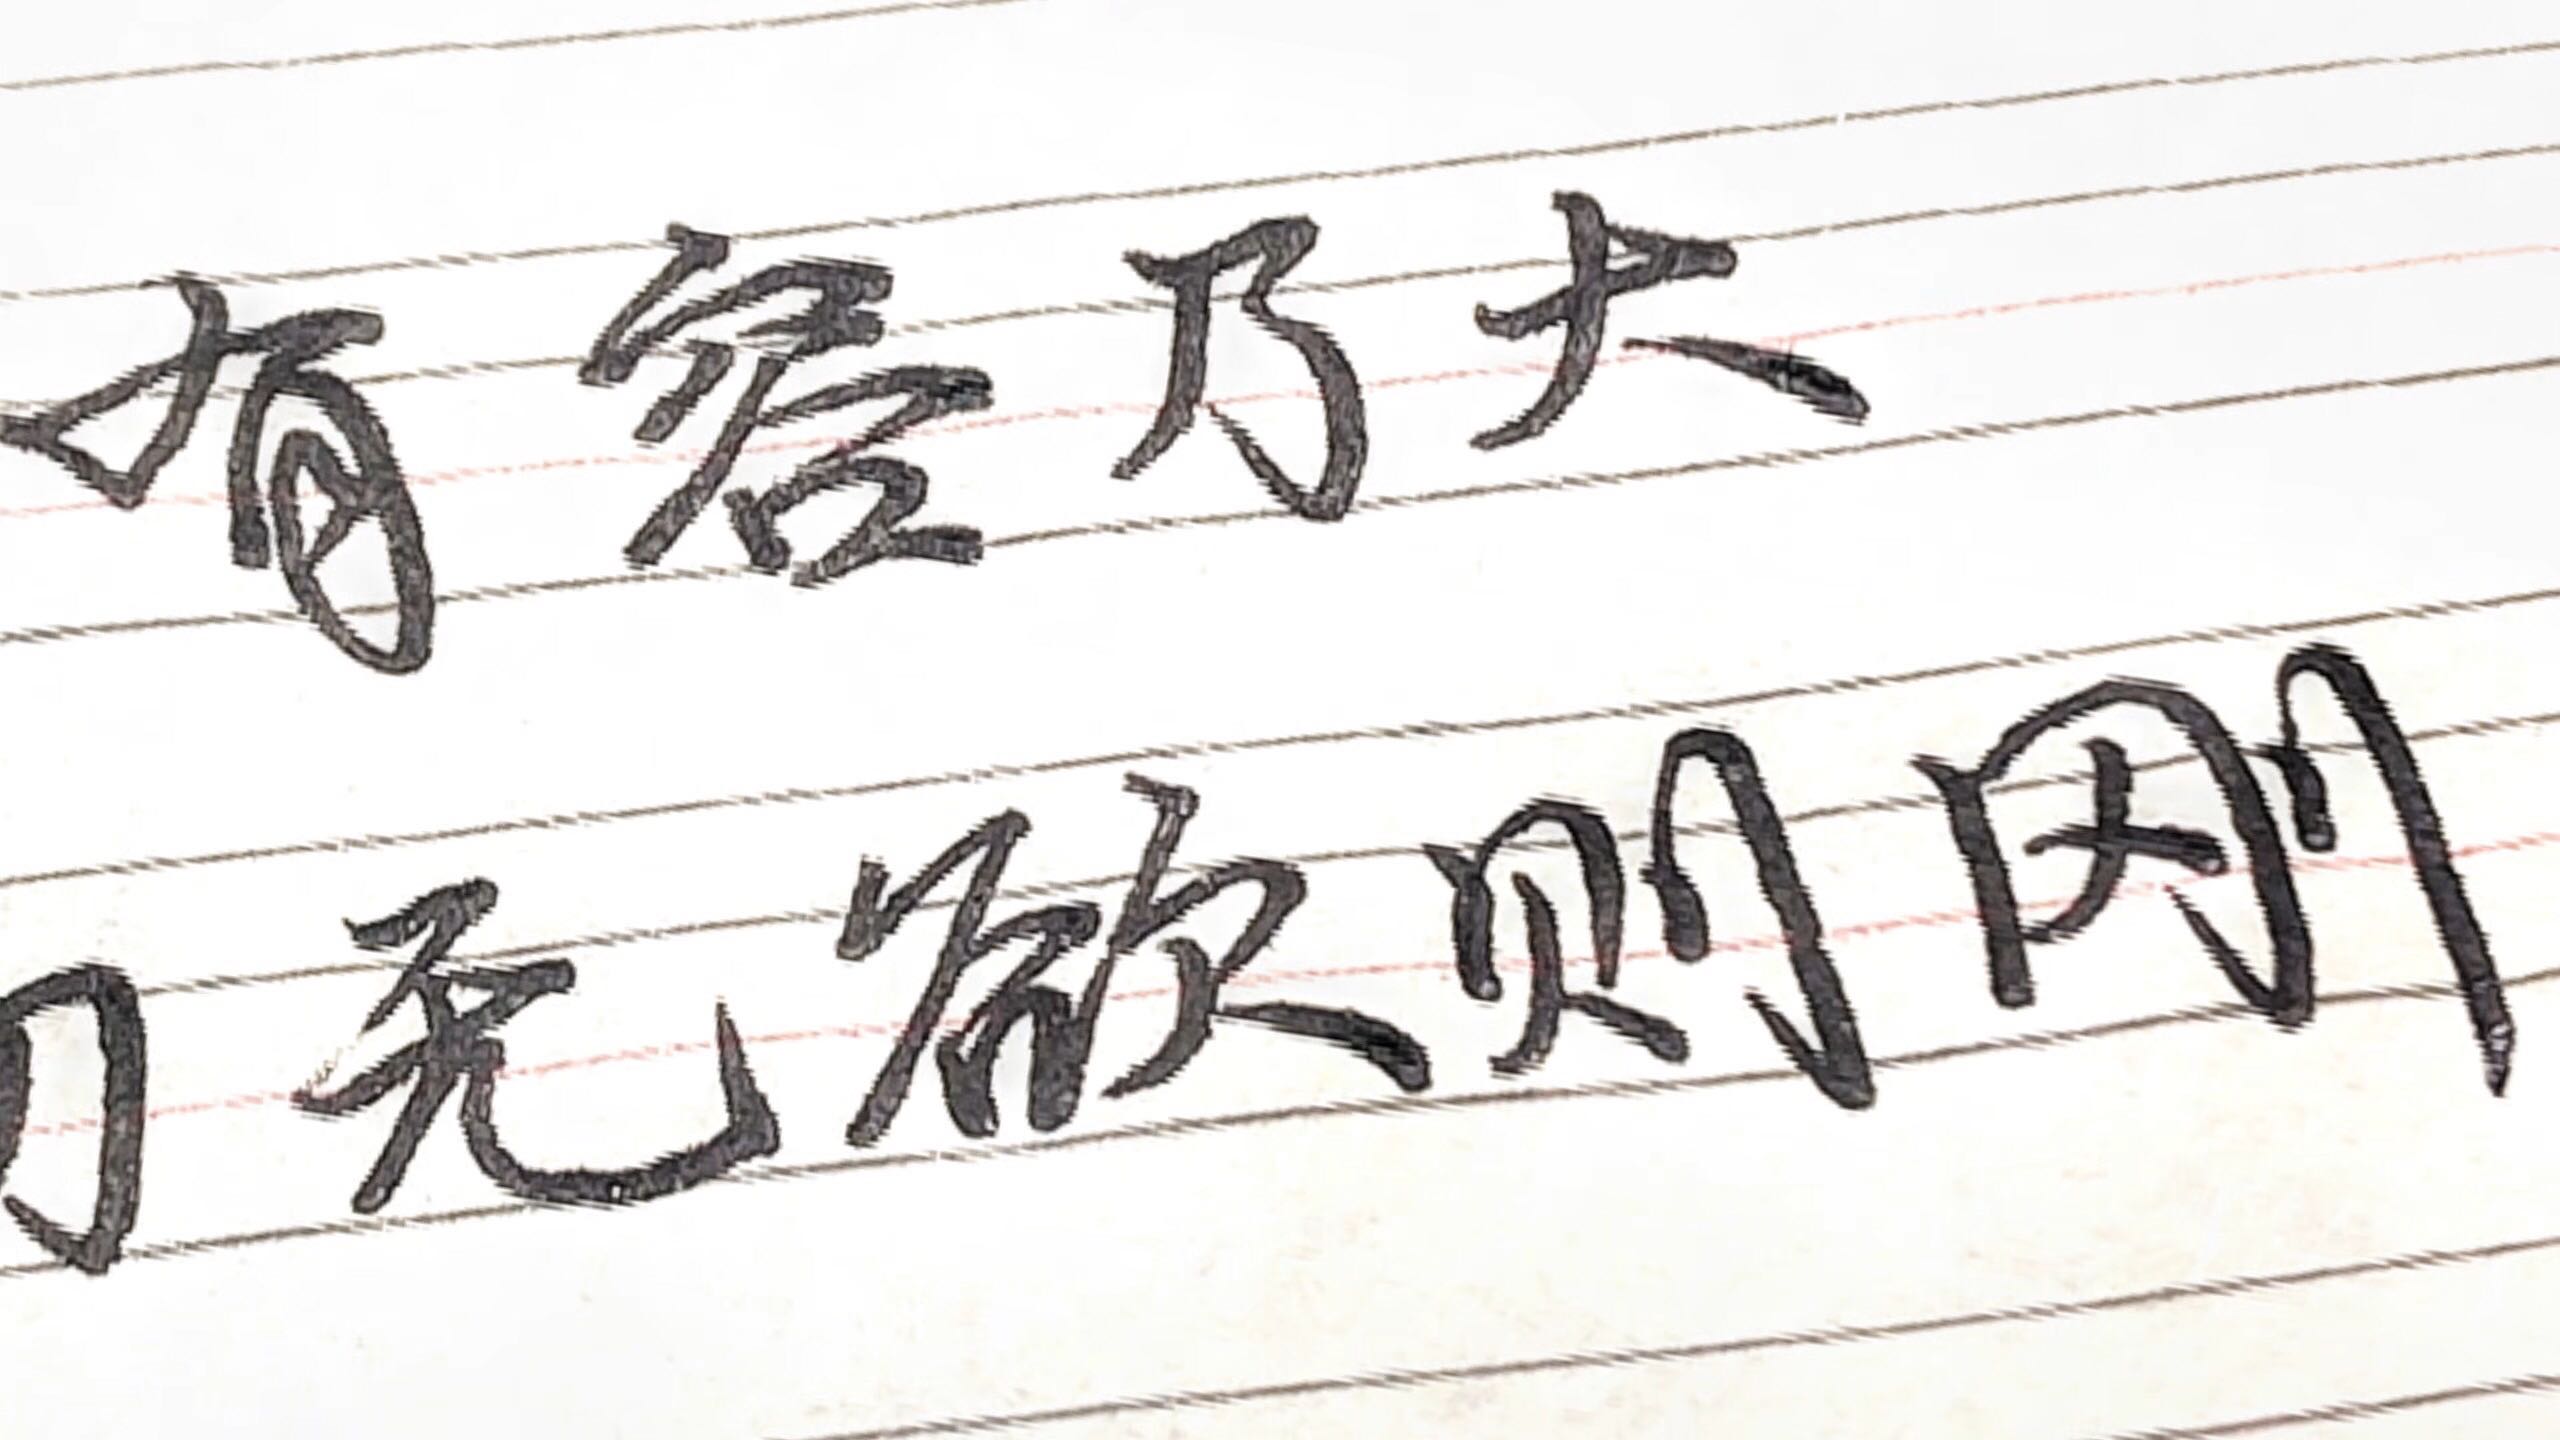 有容乃大
无欲则刚